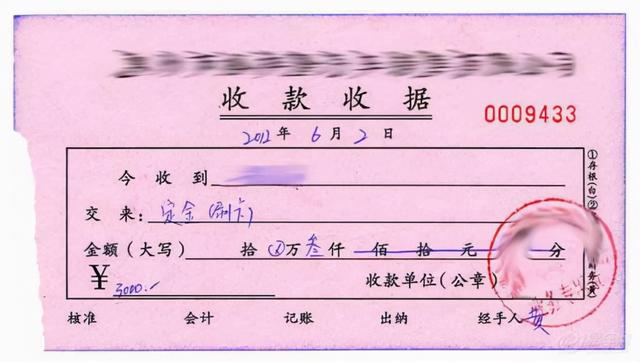 收款收据 0009433
2012年6月2日
今收到
交来：定金(刷卡)
金额（大写） 拾 万叁仟 佰 拾 元 分
¥ 3000.- 收款单位（公章）
核准 会计 记账 出纳 经手人 黄
①存根(白)②